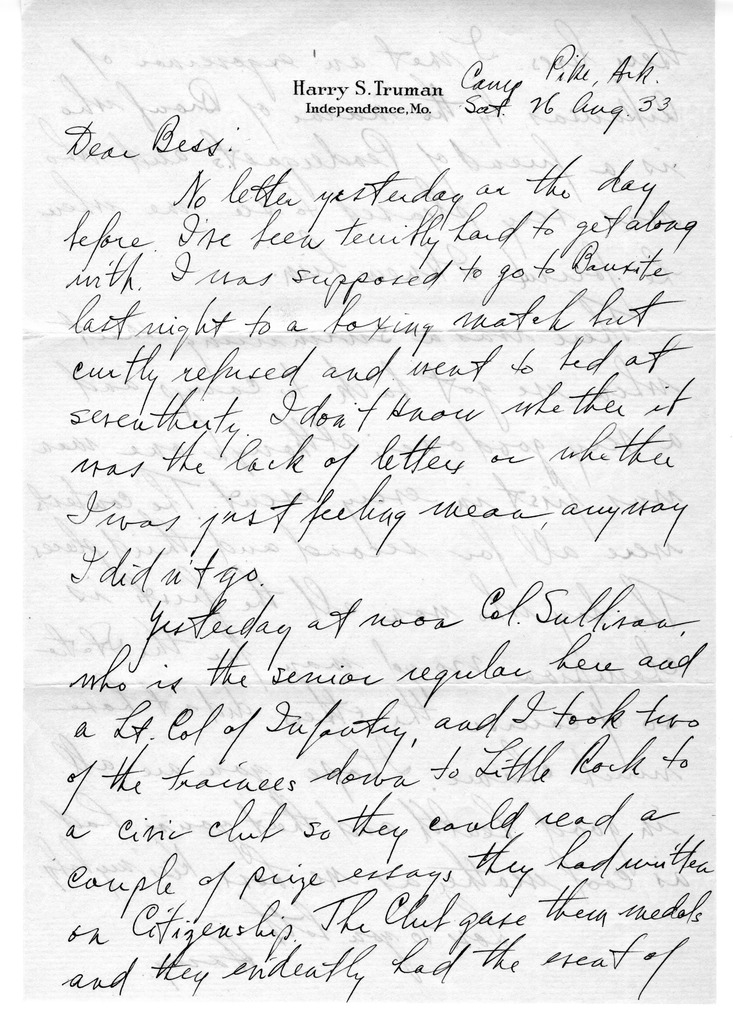 Harry S. Truman
Independence, Mo.
Camp Pike, Ark.
Sat. 26 Aug. 33
Dear Bess:
No letter yesterday or the day
before. I've been terribly hard to get along
with. I was supposed to go to Bauxite
last night to a boxing match but
curtly refused and went to bed at
seventhirty. I don't know whether it
was the lack of letters or whether
I was just feeling mean, anyway
I didn't go.
Yesterday at noon Col. Sullivan,
who is the senior regular here and
a Lt. Col of Infantry, and I took two
of the trainees down to Little Rock to
a civic club so they could read a
couple of prize essays they had written
on Citizenship. The Club gave them medals
and they evidently had the event of